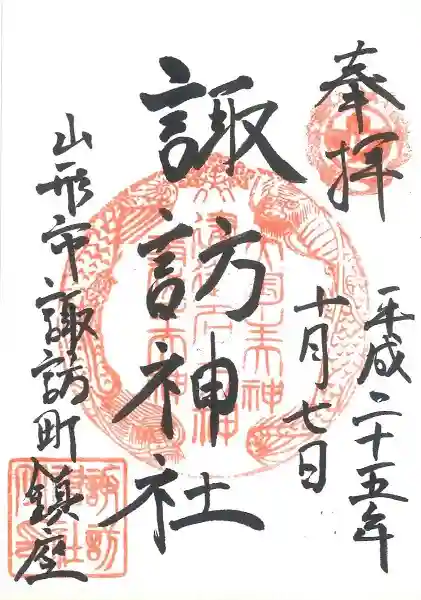 奉拝
平成二十五年
十月七日
諏訪神社
山形市諏訪町鎮座